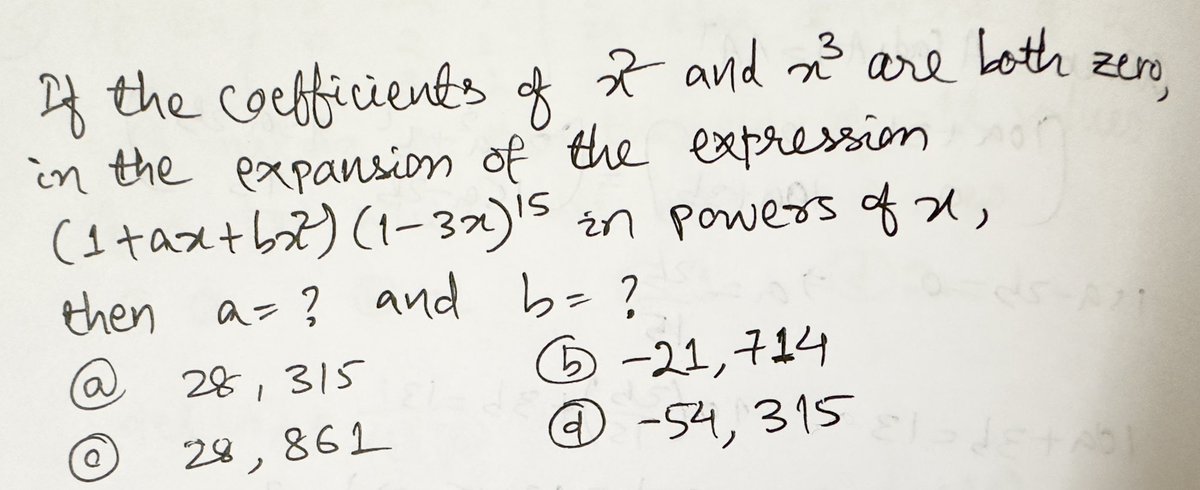 If the coefficients of x² and x³ are both zero,
in the expansion of the expression
(1+ax+bx²)(1-3x)¹⁵ in powers of x,
then a=? and b=?
ⓐ 28, 315 ⓑ -21, 714
ⓒ 28, 861 ⓓ -54, 315